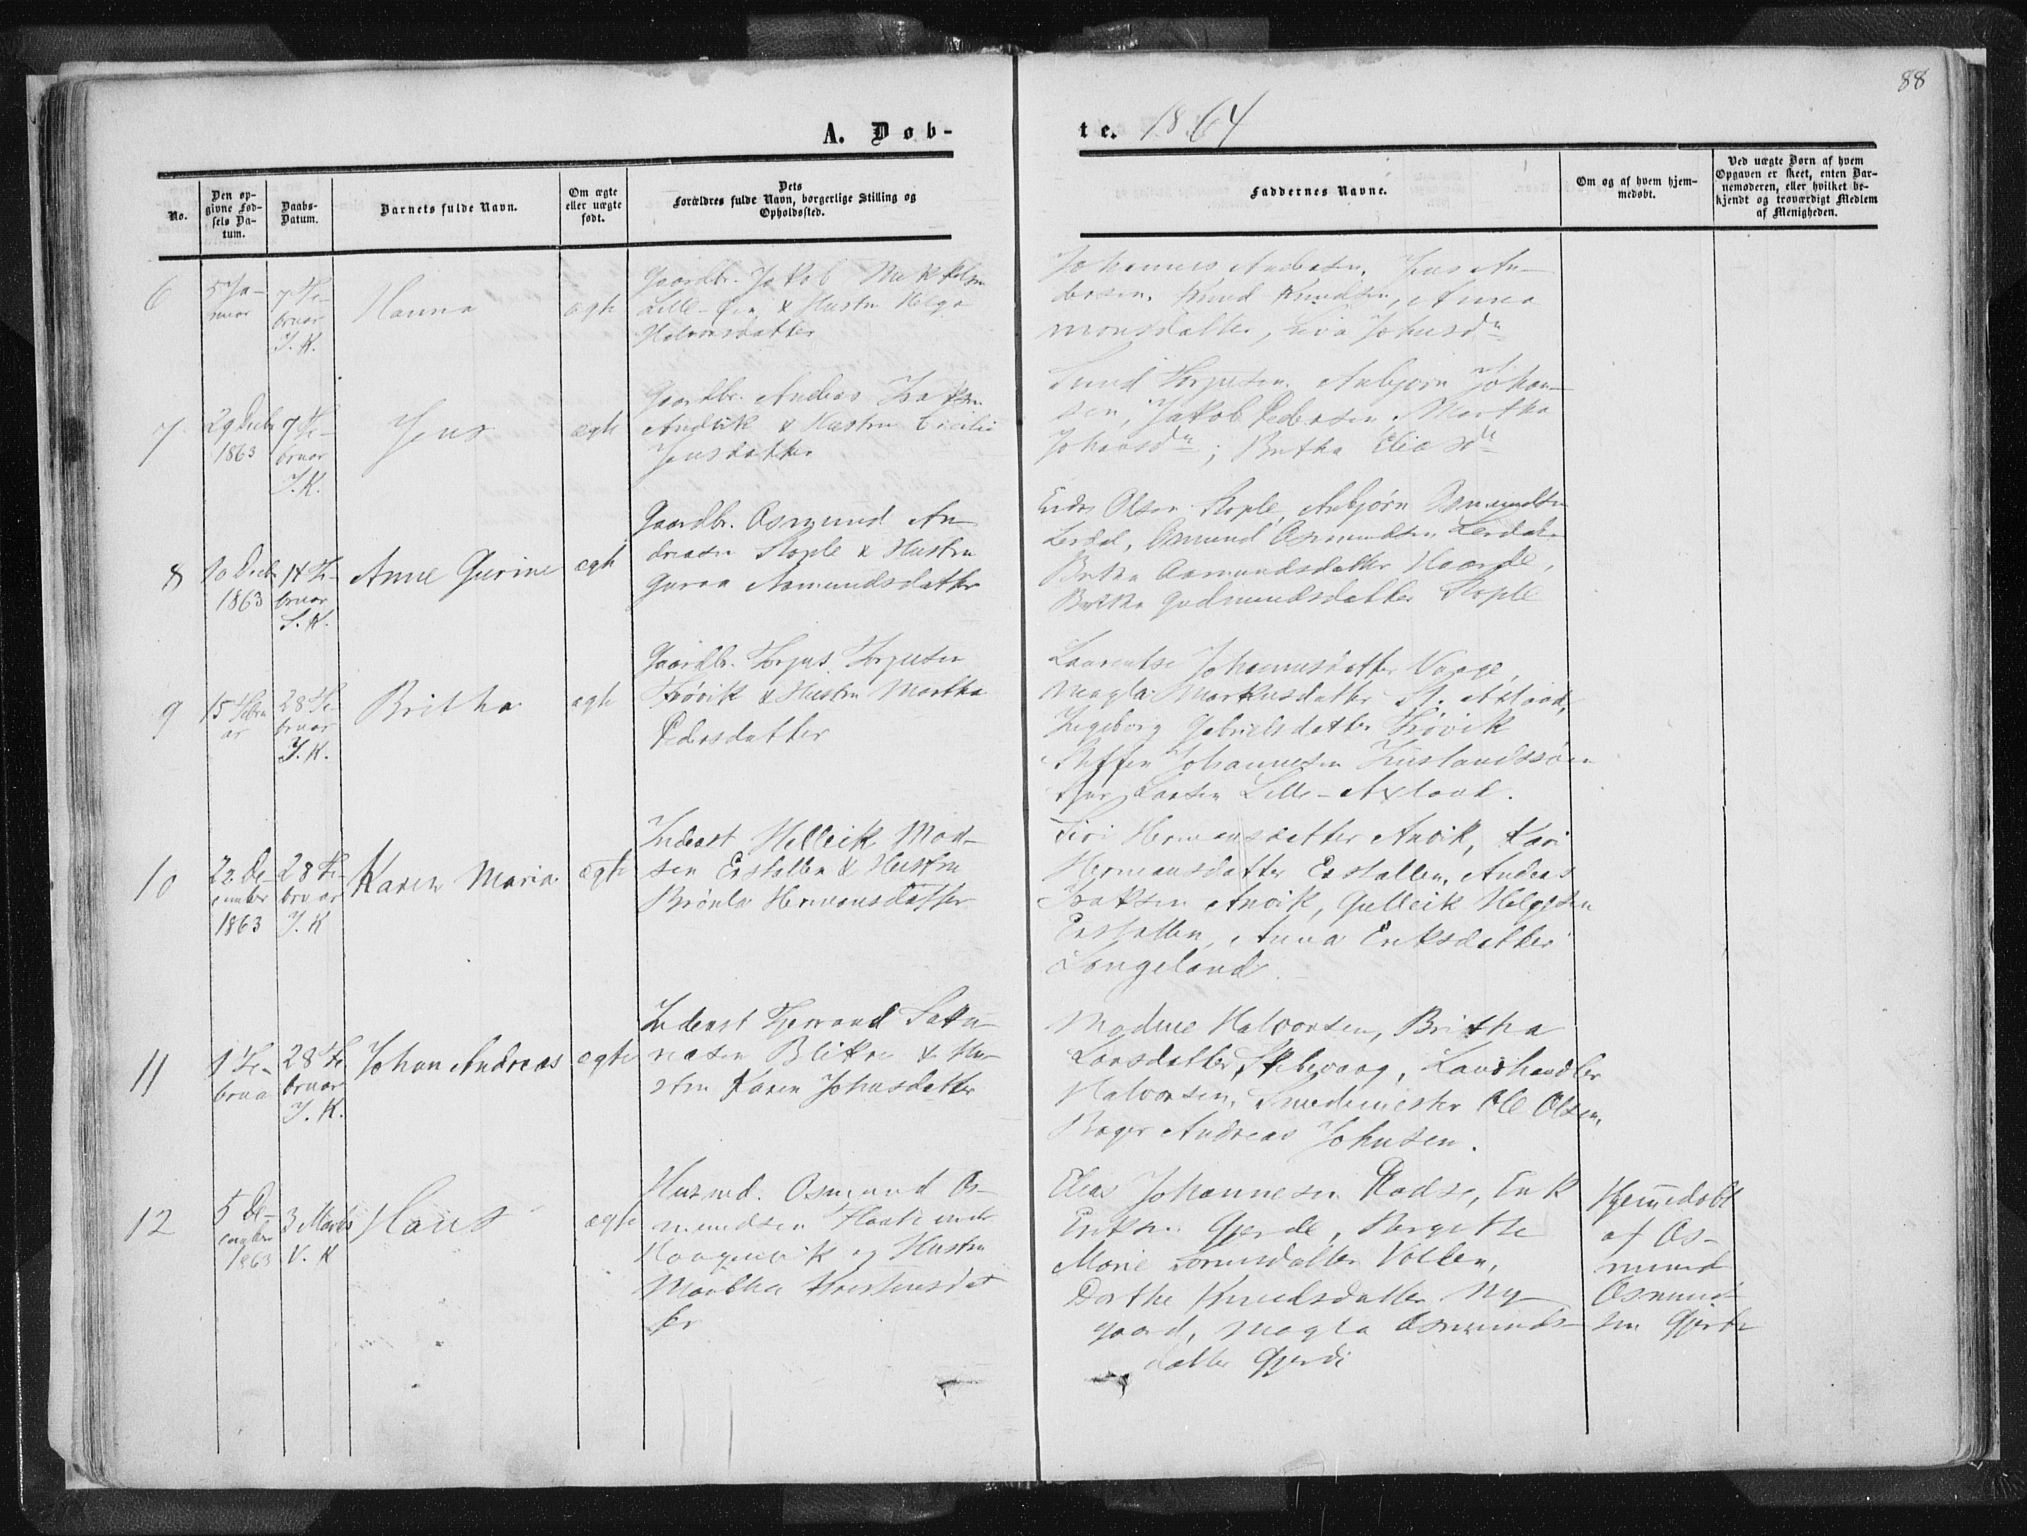 88
A. Døb-
te. 1864
No.
Den op-
givne Fød-
sels Da-
tum.
Daabs-
Datum.
Barnets fulde Navn.
Om ægte
eller uægte
født.
Dets
Forældres fulde Navn, borgerlige Stilling og
Opholdssted.
Faddernes Navne.
Om og af hvem hjem-
medøbt.
Ved uægte Børn af hvem
Opgaven er skeet, enten Bar-
nemoderen, eller hvilket be-
kjendt og troværdigt Medlem
af Menigheden.
6
5 Ja-
nuar
7 Fe-
bruar
J. K.
Hanna
ægte
Gaardbr. Jakob
Lille- & Hustru Helga
Halvorsdatter
Johannes Andersen, Jens An-
dersen, Knud Knudsen, Anna
Monsdatter, Johnsdr
7
29 Decbr
1863
7 Fe-
bruar
J. K.
Jens
ægte
Gaardbr. Andreas Isaksen
Andvik & Hustru Cecilie
Jensdatter
Torjusen, Anbjørn Johan-
sen, Jakob Pedersen, Martha
Johansdr; Britha Eliasdr
8
10 Decbr
1863
14 Fe-
bruar
S. K.
Anne Gurine
ægte
Gaardbr. Osmund An-
dreasen Stople & Hustru
Guroa Asmundsdatter
Endre Olsen Stople, Anbjørn Osmundsen
Lerdal, Osmund Osmundsen Lerdal
Britha Asmundsdatter Haarde,
Britha Gudmundsdatter Stople
9
15 Febru
ar
28 Fe-
bruar
J. K.
Britha
ægte
Gaardbr. Torjus Torjusen
Frøvik & Hustru Martha
Pedersdatter
Laurentse Johannesdatter Vaage,
Magla Markusdatter St. Axland,
Ingeborg Gabrielsdatter Frøvik
Steffen Johannesen
Larsen Lille-Axland.
10
22 De-
cember
1863
28 Fe-
bruar
J. K
Karen Maria
ægte
Inderst Helleik Mad-
sen Erstallen & Hustru
Brønla Hermansdatter
Siri Hermansdatter Anvik, Kari
Hermansdatter Erstallen, Andreas
Isaksen Anvik, Gulleik Helgesen
Erstallen, Anna Eriksdatter
Langeland.
11
1 Fe-
brua
28 Fe
bruar
J. K.
Johan Andreas
ægte
Inderst Tjerrand Saka-
riasen Blikra & Hu-
stru Karen Johnsdatter
Madme Halvorsen, Britha
Larsdatter, Landhandler
Halvorsen, Smedemester Ole Olsen,
Bager Andreas Johnsen.
12
5 De-
cember
1863
3 Marts
V. K
Hans
ægte
Husmd. Osmund Os-
mundsen
og Hustru
Martha Kristensdat
ter
Elias Johannesen Rødse, Erik
Eriksen Gjerde, Bergithe
Marie datter Vollen,
Dorthe Knudsdatter Ny-
gaard, Magla Osmunds-
datter Gjerde
Hjemmedøbt
af Os-
mund
Osmund-
sen Gjerde